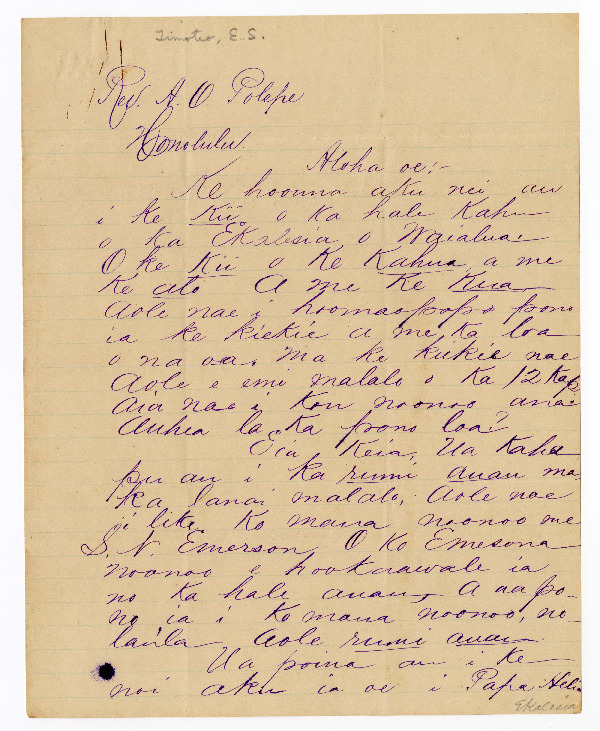 Timoteo, E. S.
Rev. A. O Polepe
Honolulu
Aloha oe:-
Ke hoouna aku nei au
i ke Kii o ka hale Kahu
o ka Ekalesia o Waialua.
O ke Kii o ke Kahua a me
ke alo A me ke Kua
Aole nae i hoomaopopo pono
ia ke kiekie a me ka loa
o na oa. Ma ke kiekie nae
Aole e emi malalo o ka 12 Kap
Aia nae i kou noonoo ana:
Auhea la ka pono loa?
Eia Keia, Ua Kaha
pu au i ka rumi auau ma
ka lanai malalo, Aole nae
i like ko maua noonoo me
S. N. Emerson, O ko Emesona
noonoo e hookaawale ia
no ka hale auau, A aa po-
no ia i ko maua noonoo, no-
laila Aole rumi auau
Ua poina au i ke
noi aku ia oe i Papa Helu
Ekalesia